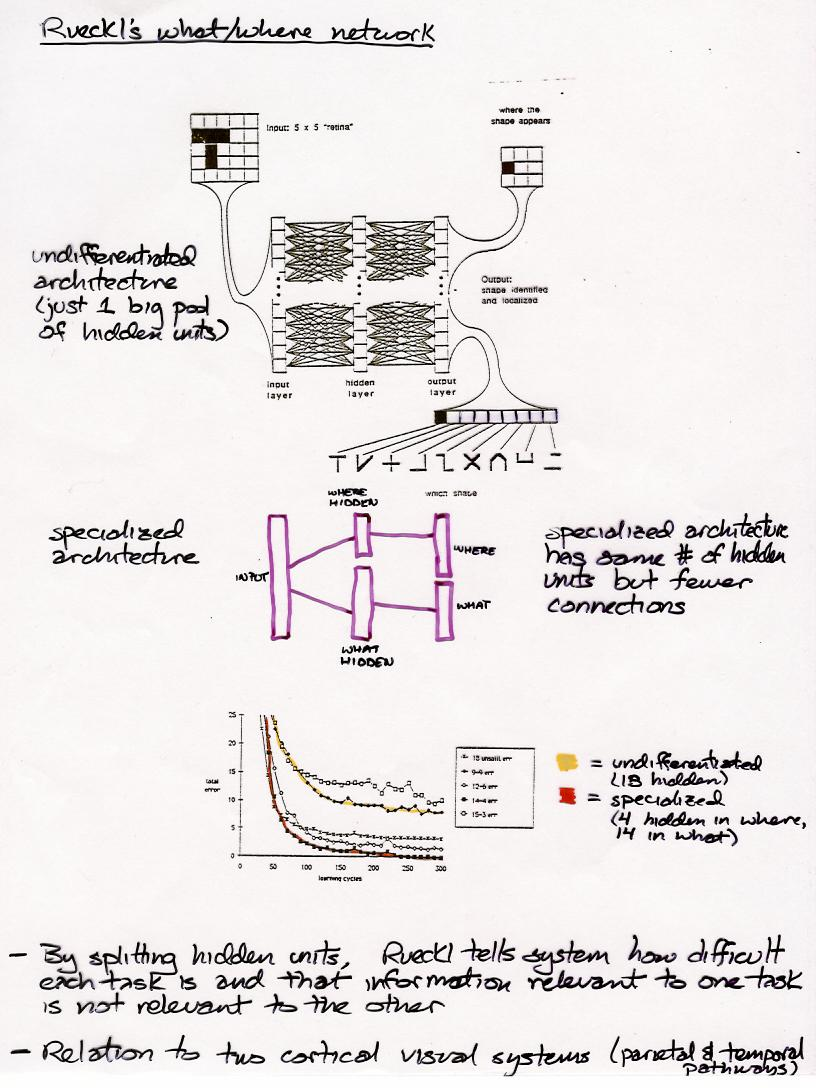 Rueckl's what/where network
where the
shape appears
Input: 5 x 5 "retina"
undifferentiated
architecture
(just 1 big pool
of hidden units)
Output:
shape identified
and localized
input
layer
hidden
layer
output
layer
which shape
specialized
architecture
WHERE
HIDDEN
INPUT
WHERE
WHAT
WHAT
HIDDEN
specialized architecture
has same # of hidden
units but fewer
connections
25
20
15
10
5
0
total
error
0 50 100 150 200 250 300
learning cycles
18 unsplit err
9-9 err
12-6 err
14-4 err
15-3 err
= undifferentiated
(18 hidden)
= specialized
(4 hidden in where,
14 in what)
- By splitting hidden units, Rueckl tells system how difficult
each task is and that information relevant to one task
is not relevant to the other
- Relation to two cortical visual systems (parietal & temporal
pathways)